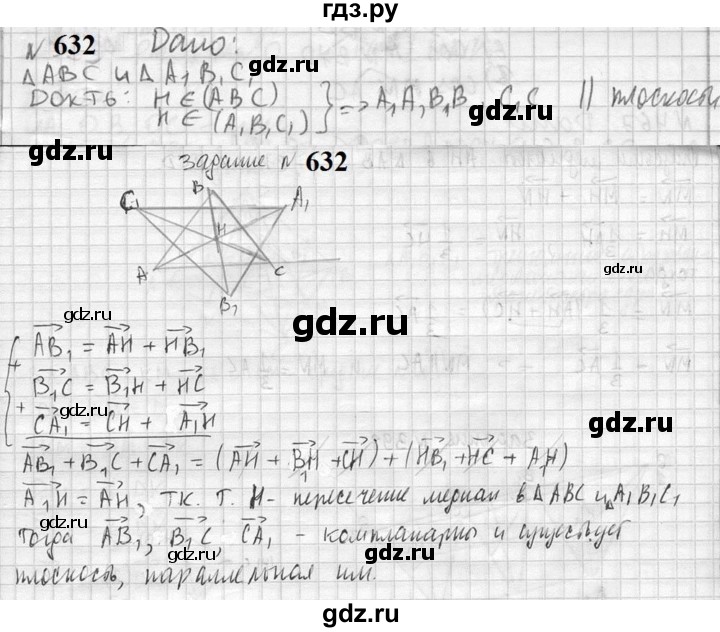 гдз.ру
№ 632 Дано:
△ABC и △A₁B₁C₁
Док-ть: H ∈ (ABC)
H ∈ (A₁B₁C₁) } => A₁A, B₁B, C₁C || плоскости
gdz.ru gdz.ru
Задание № 632
B
C₁ A₁
H
A C
B₁
gdz.ru
gdz.ru
gdz.ru
gdz.ru
gdz.ru
AB₁ = AH + HB₁
+ B₁C = B₁H + HC
+ CA₁ = CH + A₁H
gdz.ru
gdz.ru
AB₁ + B₁C + CA₁ = (AH + B₁H + CH) + (HB₁ + HC + A₁H)
A₁H = AH, т.к. т. H - пересечение медиан в △ABC и △A₁B₁C₁
gdz.ru
Тогда AB₁, B₁C, CA₁ - компланарны и существует
gdz.ru
плоскость, параллельная им.
gdz.ru